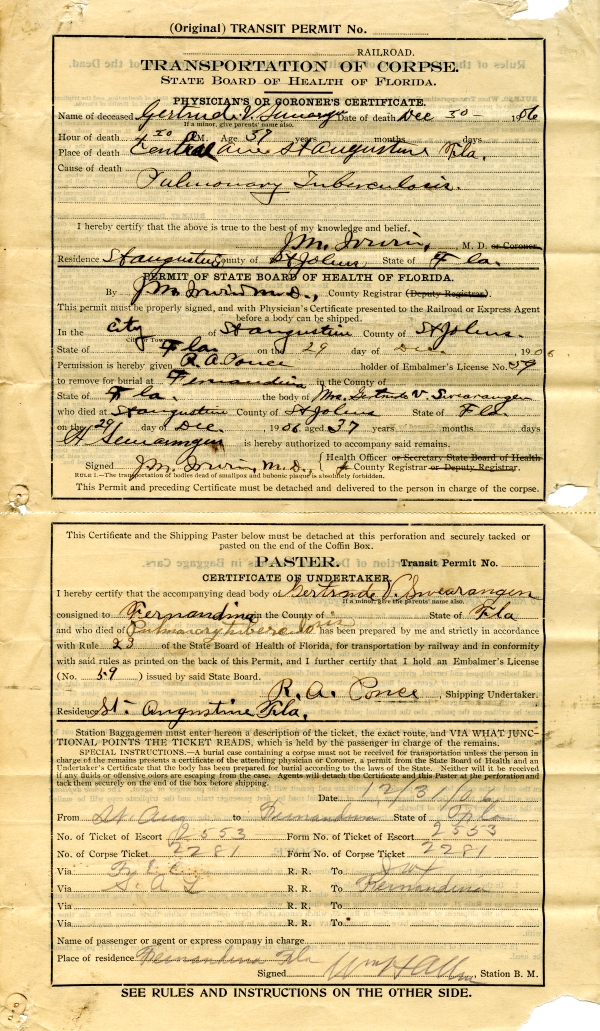 (Original) TRANSIT PERMIT No.
RAILROAD.
TRANSPORTATION OF CORPSE.
STATE BOARD OF HEALTH OF FLORIDA.
PHYSICIAN'S OR CORONER'S CERTIFICATE.
Name of deceased Gertrude V. Date of death Dec 30 - 1906
If a minor, give parents' name also.
Hour of death 4 30 A M. Age 37 years months days
Place of death Central Ave St Augustine Fla.
Cause of death
Pulmonary Tuberculosis.
I hereby certify that the above is true to the best of my knowledge and belief.
J. M. Irwin, M. D. or Coroner.
Residence St Augustine County of St Johns, State of Fla.
PERMIT OF STATE BOARD OF HEALTH OF FLORIDA.
By J. M. Irwin M. D., County Registrar (Deputy Registrar).
This permit must be properly signed, and with Physician's Certificate presented to the Railroad or Express Agent
before a body can be shipped.
In the City of St Augustine County of St Johns.
City or Town
State of Fla on the 29 day of Dec. 1906
Permission is hereby given R. A. Ponce holder of Embalmer's License No. 59
to remove for burial at Fernandina in the County of
State of Fla. the body of Mrs. Gertrude V. Swearangen
who died at St Augustine County of St Johns State of Fla
on the 29 day of Dec. 1906 aged 37 years months days
is hereby authorized to accompany said remains.
Signed J. M. Irwin, M. D., Health Officer or Secretary State Board of Health
County Registrar or Deputy Registrar.
RULE 1.—The transportation of bodies dead of smallpox and bubonic plague is absolutely forbidden.
This Permit and preceding Certificate must be detached and delivered to the person in charge of the corpse.
This Certificate and the Shipping Paster below must be detached at this perforation and securely tacked or
pasted on the end of the Coffin Box.
PASTER. Transit Permit No.
CERTIFICATE OF UNDERTAKER.
I hereby certify that the accompanying dead body of Gertrude V. Swearangen
If a minor, give the parents' name also.
consigned to Fernandina in the County of " State of Fla
and who died of Pulmonary tuberculosis has been prepared by me and strictly in accordance
with Rule 23 of the State Board of Health of Florida, for transportation by railway and in conformity
with said rules as printed on the back of this Permit, and I further certify that I hold an Embalmer's License
(No. 59) issued by said State Board.
R. A. Ponce, Shipping Undertaker.
Residence St. Augustine Fla.
Station Baggagemen must enter hereon a description of the ticket, the exact route, and VIA WHAT JUNC-
TIONAL POINTS THE TICKET READS, which is held by the passenger in charge of the remains.
SPECIAL INSTRUCTIONS.—A burial case containing a corpse must not be received for transportation unless the person in
charge of the remains presents a certificate of the attending physician or Coroner, a permit from the State Board of Health and an
Undertaker's Certificate that the body has been prepared for burial according to the laws of the State. Neither will be received
if any fluids or offensive odors are escaping from the case. Agents will detach the Certificate and this Paster at the perforation and
tack them securely on the end of the box before shipping.
Date 12/31/06
From St. Aug to Fernandina State of Fla
No. of Ticket of Escort 2553 Form No. of Ticket of Escort 2553
No. of Corpse Ticket 2281 Form No. of Corpse Ticket 2281
Via R. R. To
Via S. A. L R. R. To Fernandina
Via R. R. To
Via R. R. To
Name of passenger or agent or express company in charge
Place of residence Fernandina Fla
Signed Station B. M.
SEE RULES AND INSTRUCTIONS ON THE OTHER SIDE.